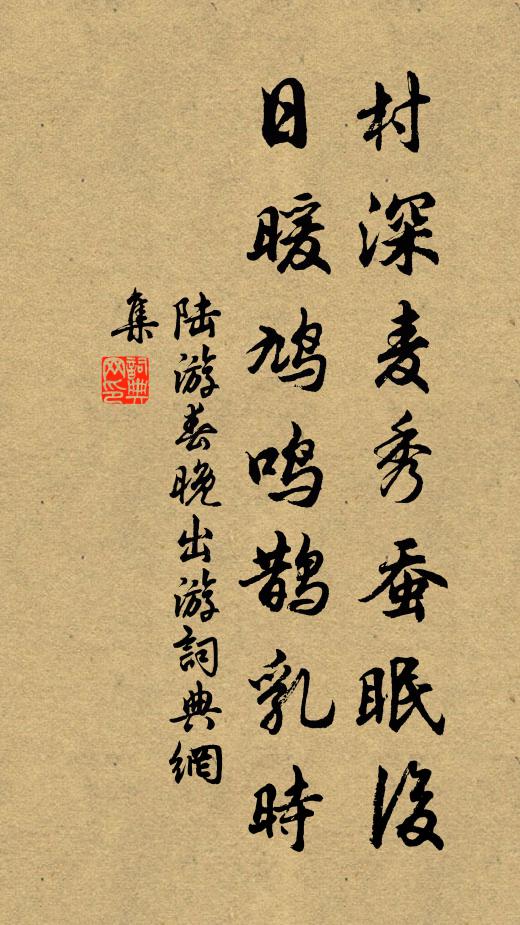 村深麦秀蚕眠後
日暖鸠鸣鹊乳時
陆游春晚出游詞典網
集
詞典
网印